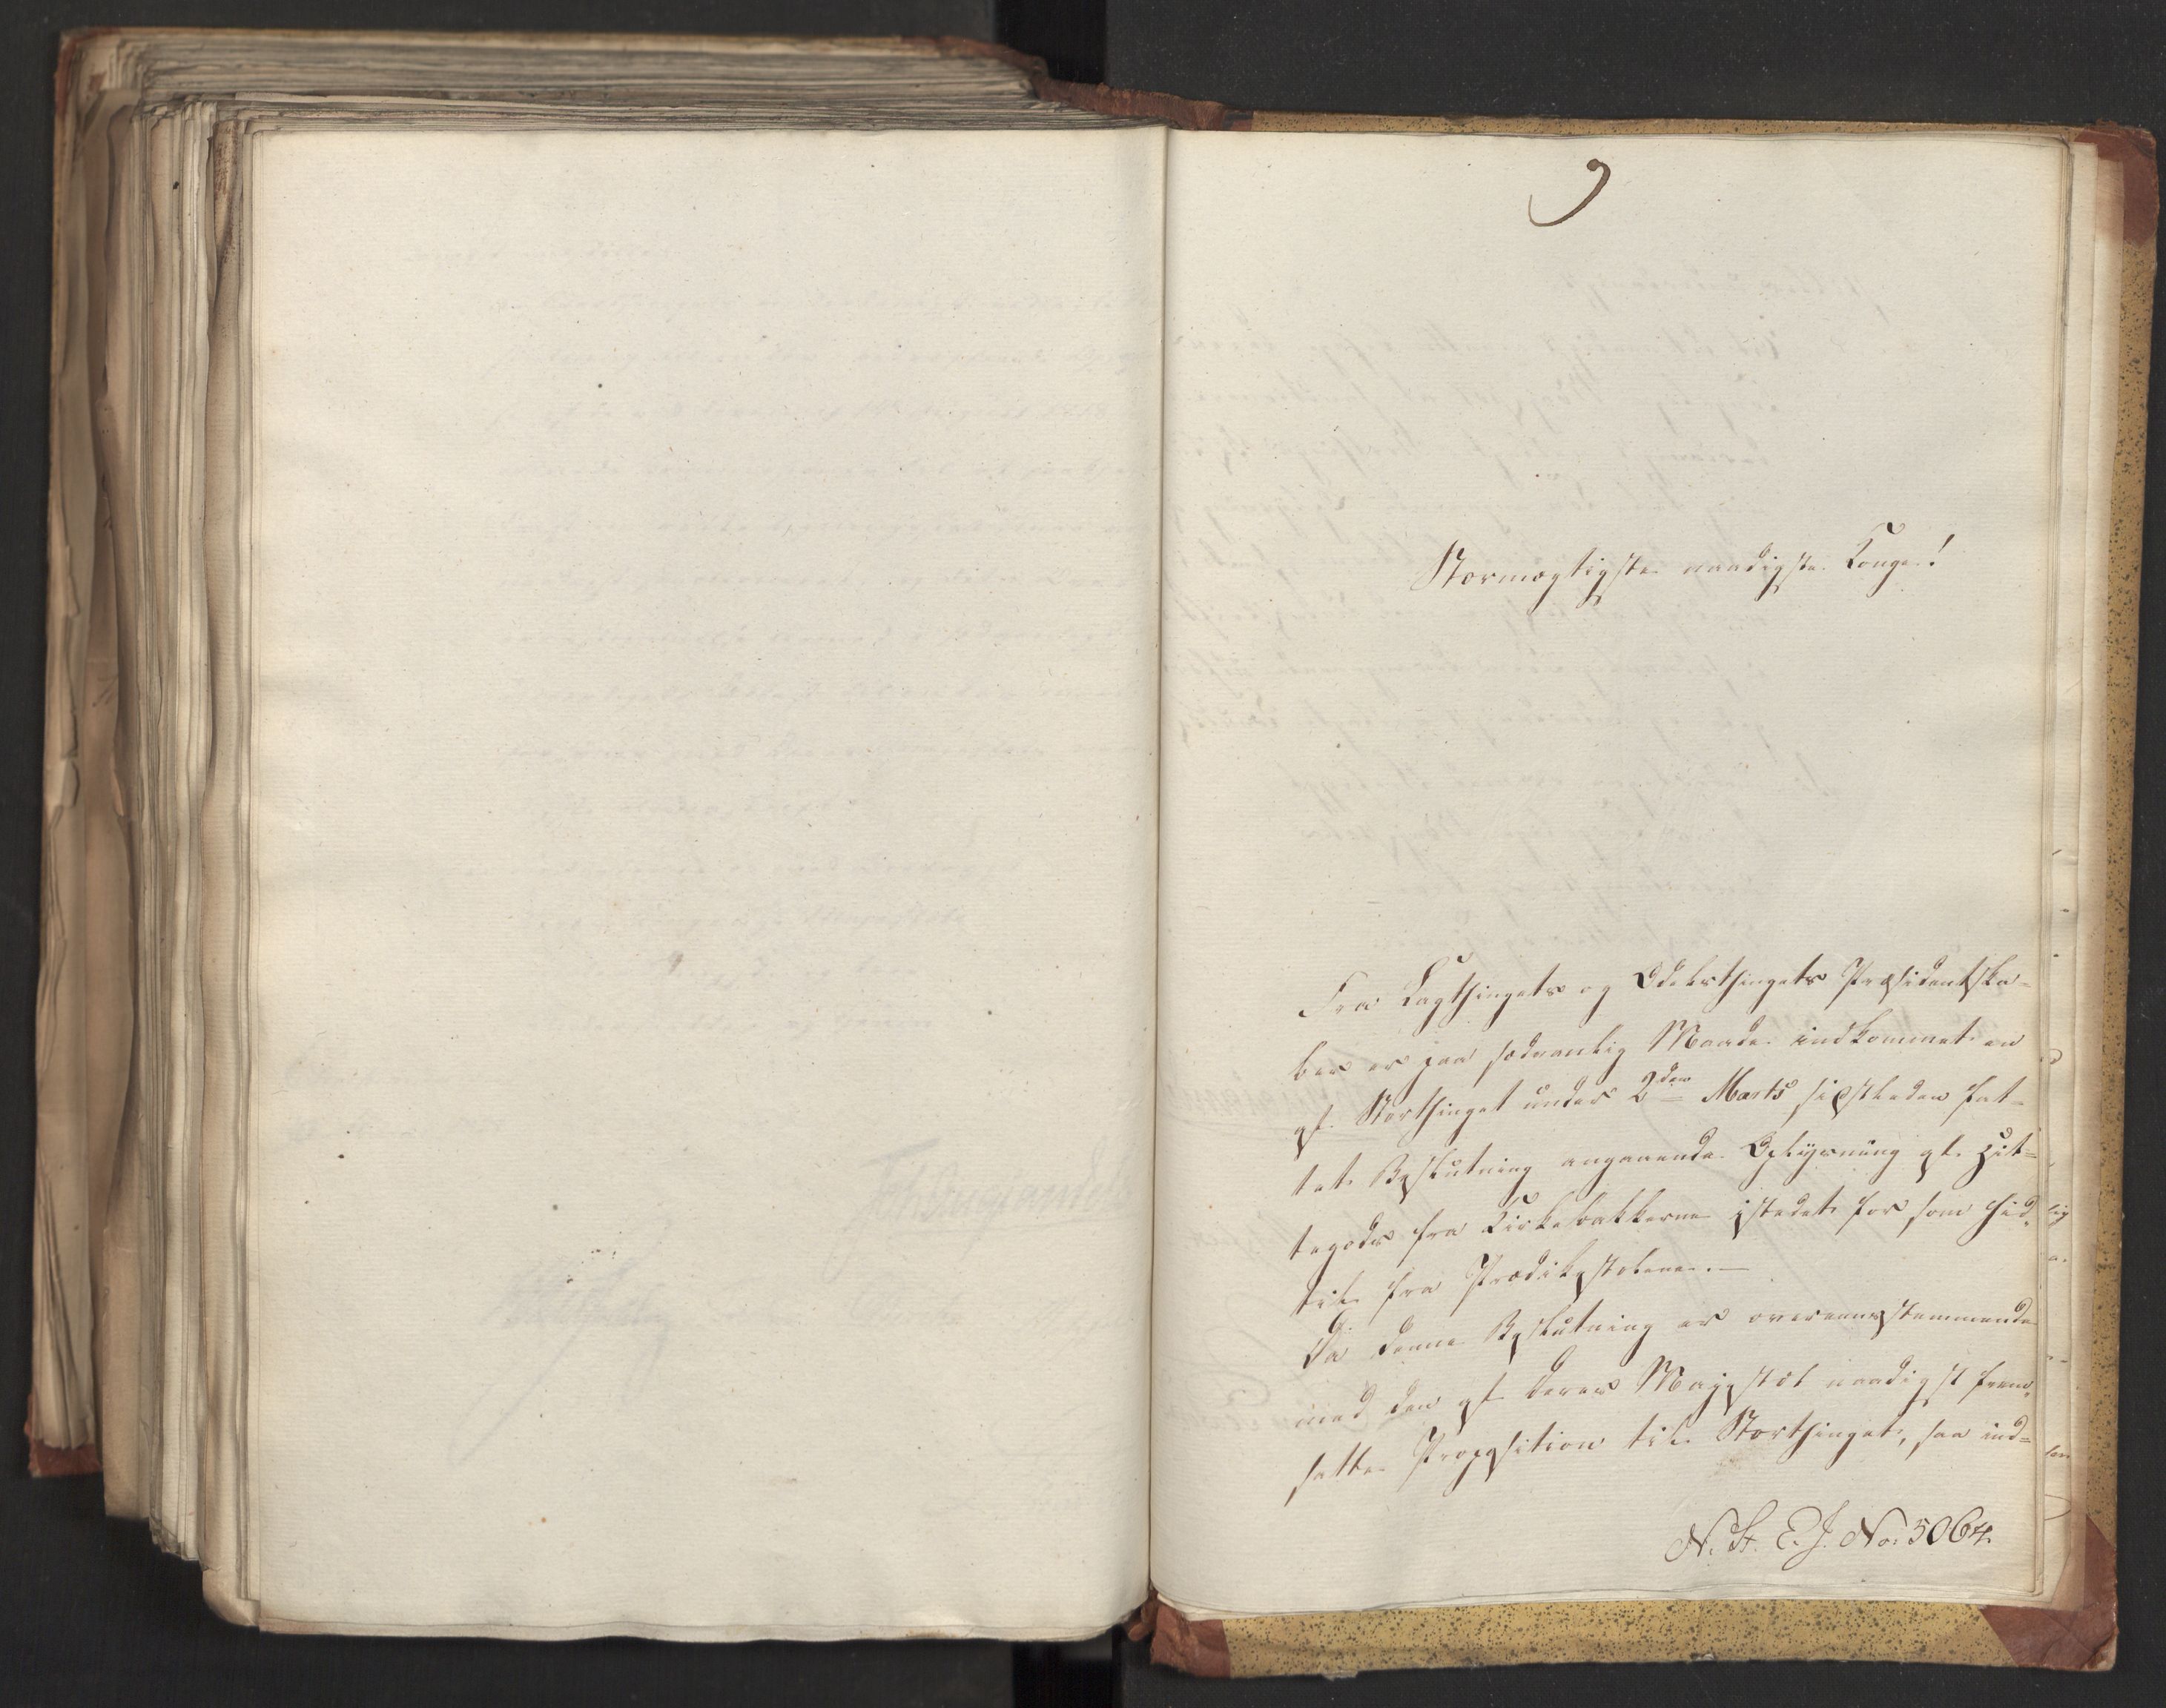 9
Stormægtigste naadigste Konge!
Fra Lagthingets og Odelsthingets Præsidentska-
ber er paa sædvanlig Maade indkommet en
af Storthinget under 2den Marts sidstleden fat-
tet Beslutning angaaende Oplysning af Hit-
tegods fra Kirkebakkerne istedet for som hid-
til fra Prædikestolene. —
Da denne Beslutning er overeensstemmende
med den af Deres Majestæt naadigst frem-
satte Proposition til Storthinget, saa ind-
N. St. E. J. No. 5064.